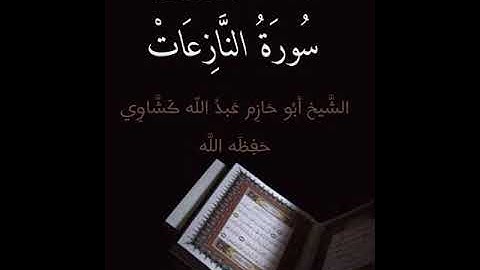 سُورَةُ النَّازِعَاتْ
الشَّيخ أَبُو حَازِم عَبدُ اللَّه كَشَّاوِي
حَفِظَه اللَّه